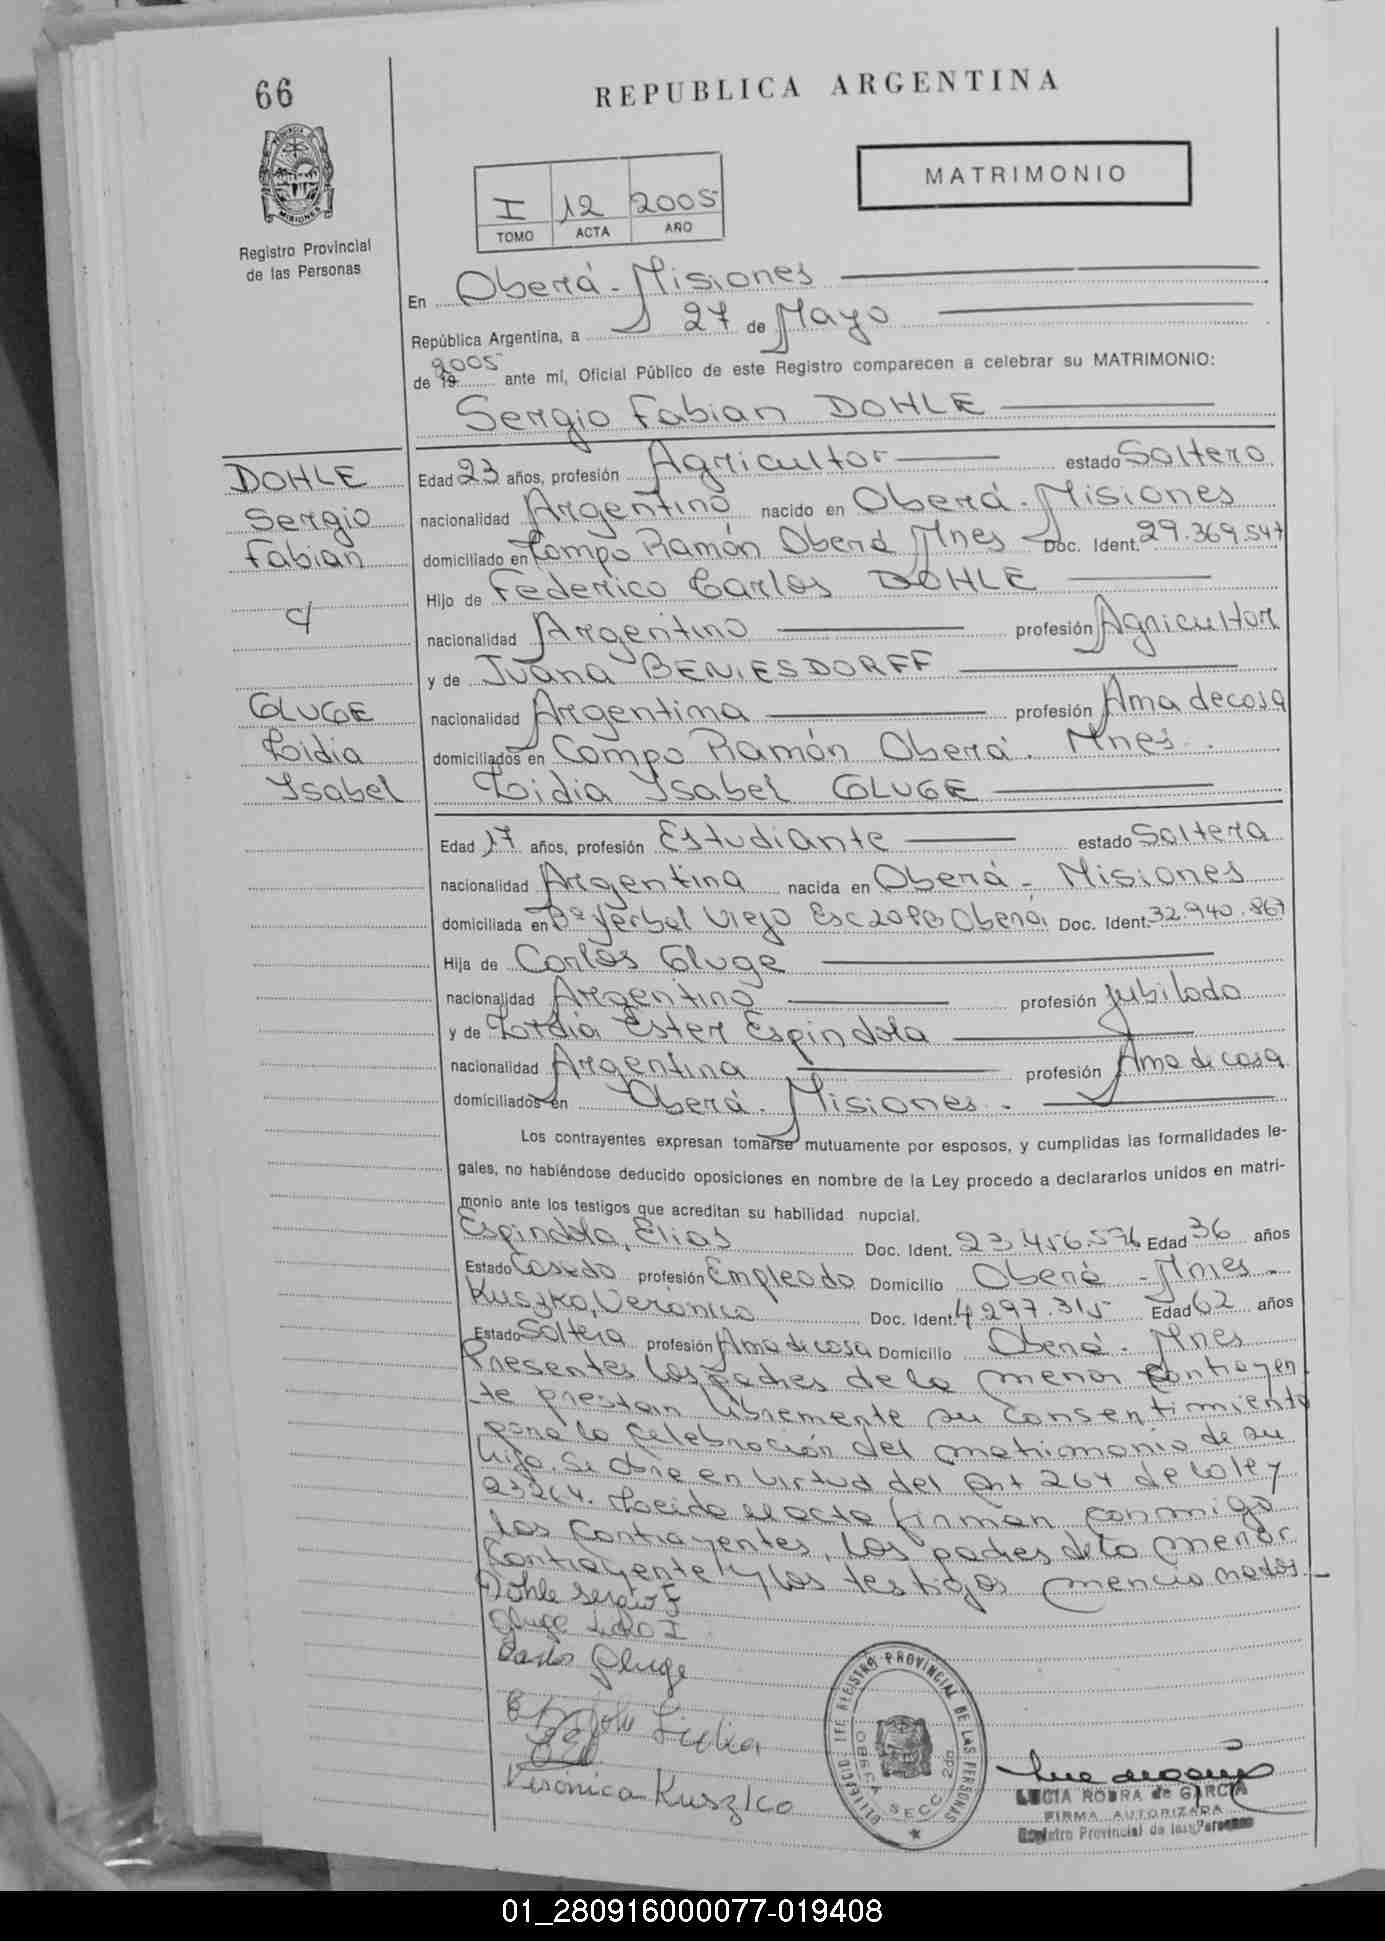 66
REPUBLICA ARGENTINA
PROVINCIA DE
MISIONES
Registro Provincial
de las Personas
I 12 2005
TOMO ACTA AÑO
MATRIMONIO
En Oberá - Misiones
República Argentina, a 27 de Mayo
de 19 2005 ante mí, Oficial Público de este Registro comparecen a celebrar su MATRIMONIO:
Sergio Fabian DOHLE
DOHLE
Sergio
Fabian
c/
GLUGE
Lidia
Ysabel
Edad 23 años, profesión Agricultor estado Soltero
nacionalidad Argentino nacido en Oberá - Misiones
domiciliado en Campo Ramón Oberá Mnes Doc. Ident. 29.369.547
Hijo de Federico Carlos DOHLE
nacionalidad Argentino profesión Agricultor
y de Juana BENIESDORFF
nacionalidad Argentina profesión Ama de casa
domiciliados en Campo Ramón Oberá. Mnes.
Lidia Ysabel GLUGE
Edad 17 años, profesión Estudiante estado Soltera
nacionalidad Argentina nacida en Oberá - Misiones
domiciliada en Bº Yerbal Viejo Esc Oberá Doc. Ident. 32.940.867
Hija de Carlos Gluge
nacionalidad Argentino profesión Jubilado
y de Lidia Ester Espindola
nacionalidad Argentina profesión Ama de casa
domiciliados en Oberá. Misiones.
Los contrayentes expresan tomarse mutuamente por esposos, y cumplidas las formalidades le-
gales, no habiéndose deducido oposiciones en nombre de la Ley procedo a declararlos unidos en matri-
monio ante los testigos que acreditan su habilidad nupcial.
Espindola, Elias Doc. Ident. 23.456.576 Edad 36 años
Estado Casado profesión Empleado Domicilio Oberá - Mnes.
Kuszko, Verónica Doc. Ident. 4.297.315 Edad 62 años
Estado Soltera profesión Ama de casa Domicilio Oberá - Mnes
Presentes los padres de la menor contrayen
te prestan libremente su consentimiento
para la celebración del matrimonio de su
hija. Se obra en virtud del Art 264 de la ley
23264. Leida el acta firman conmigo
los contrayentes, los padres de la menor
contrayente y los testigos mencionados.
Dohle Sergio F
Gluge Lidia I
Carlos Gluge
Lidia
Verónica Kuszko
REGISTRO PROVINCIAL DE LAS PERSONAS
SECC. 2da
LUCIA ROBRA de GARCIA
FIRMA AUTORIZADA
Registro Provincial de las Personas
01_280916000077-019408